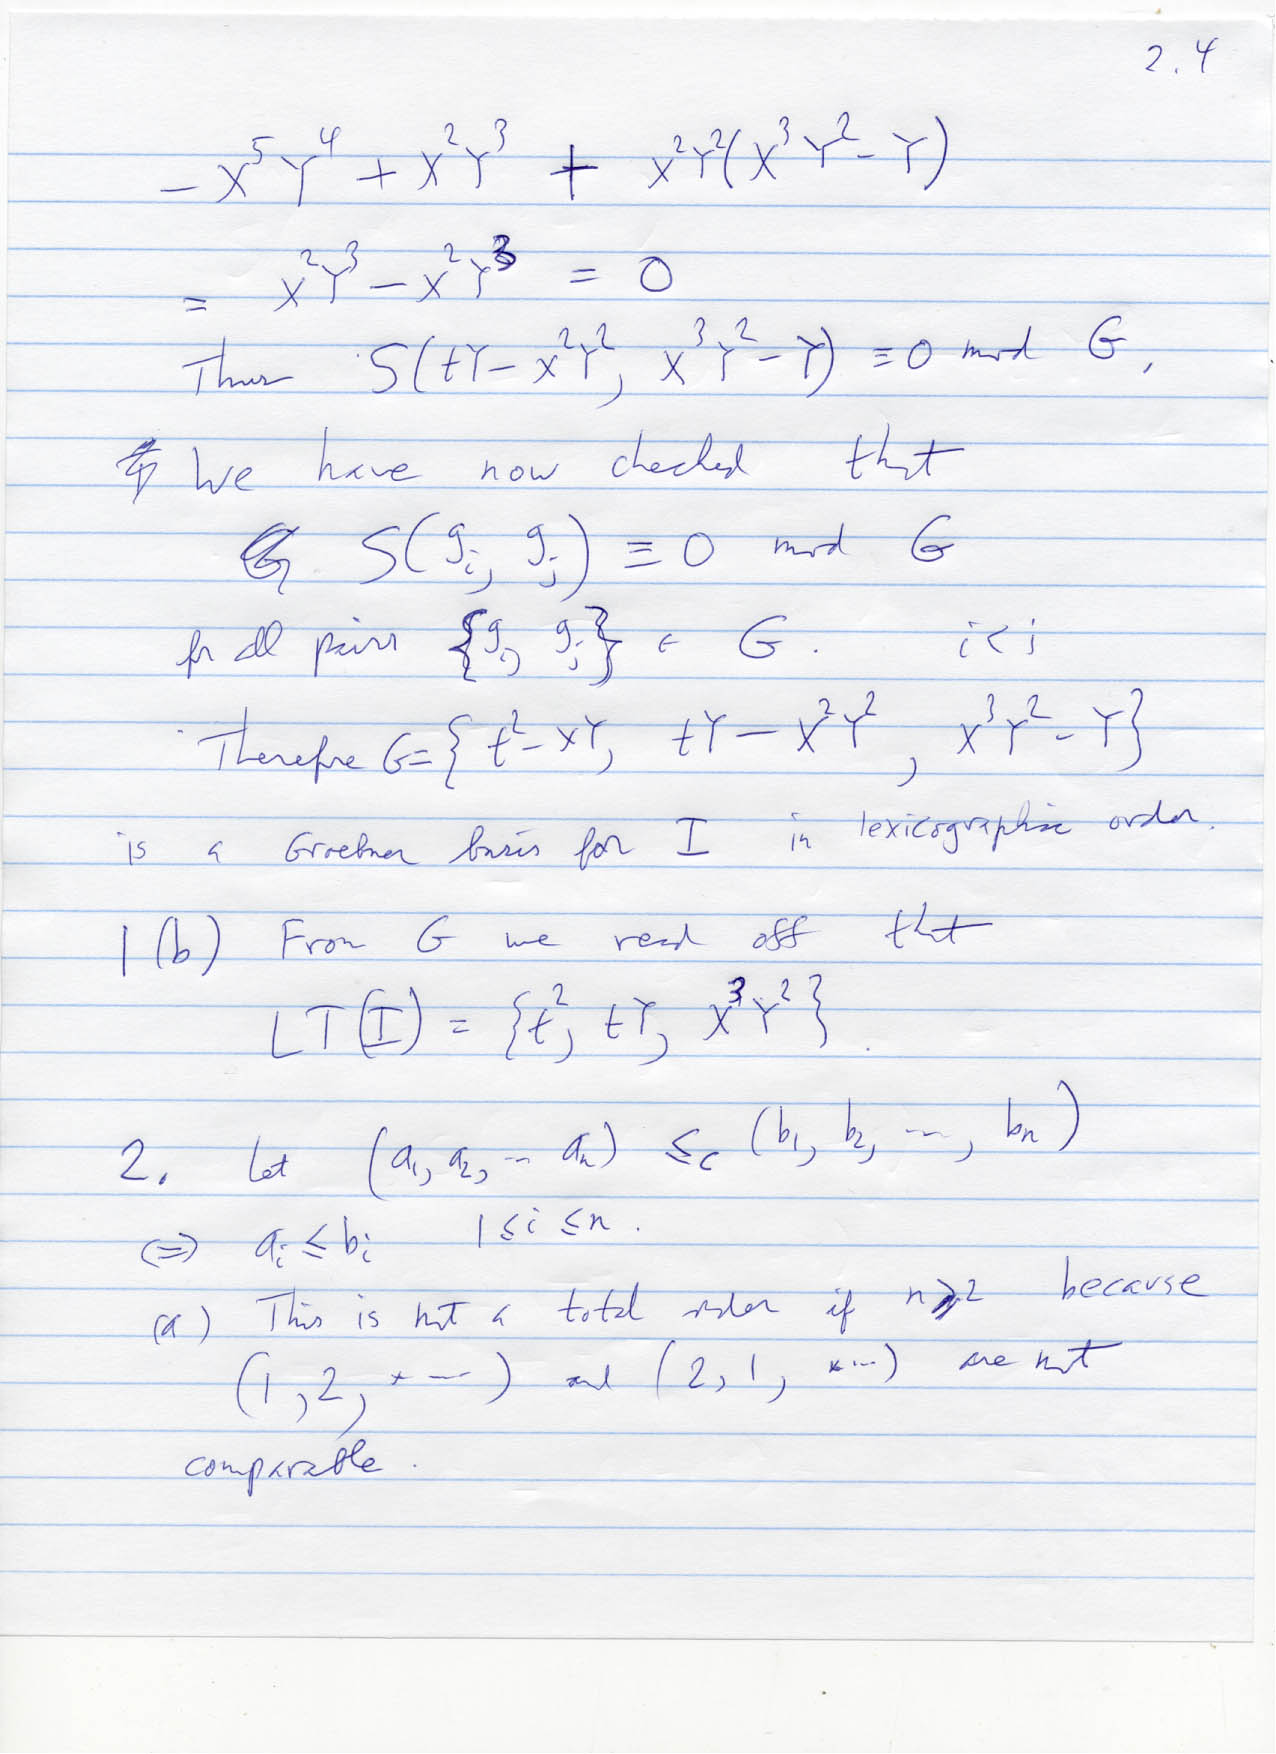 2.4
- X⁵Y⁴ + X²Y³ + X²Y²(X³Y² - Y)
= X²Y³ - X²Y³ = 0
Thus S(tY - X²Y², X³Y² - Y) ≡ 0 mod G,
We have now checked that
S(gᵢ, gⱼ) ≡ 0 mod G
for all pairs {gᵢ, gⱼ} ∈ G. i < j
Therefore G = {t² - XY, tY - X²Y², X³Y² - Y}
is a Groebner basis for I in lexicographic order.
1(b) From G we read off that
LT(I) = {t², tY, X³Y²}.
2. Let (a₁, a₂, -- aₙ) ≤c (b₁, b₂, ---, bₙ)
⇔ aᵢ ≤ bᵢ 1 ≤ i ≤ n.
(a) This is not a total order if n ≥ 2 because
(1, 2, * ---) and (2, 1, * ---) are not
comparable.